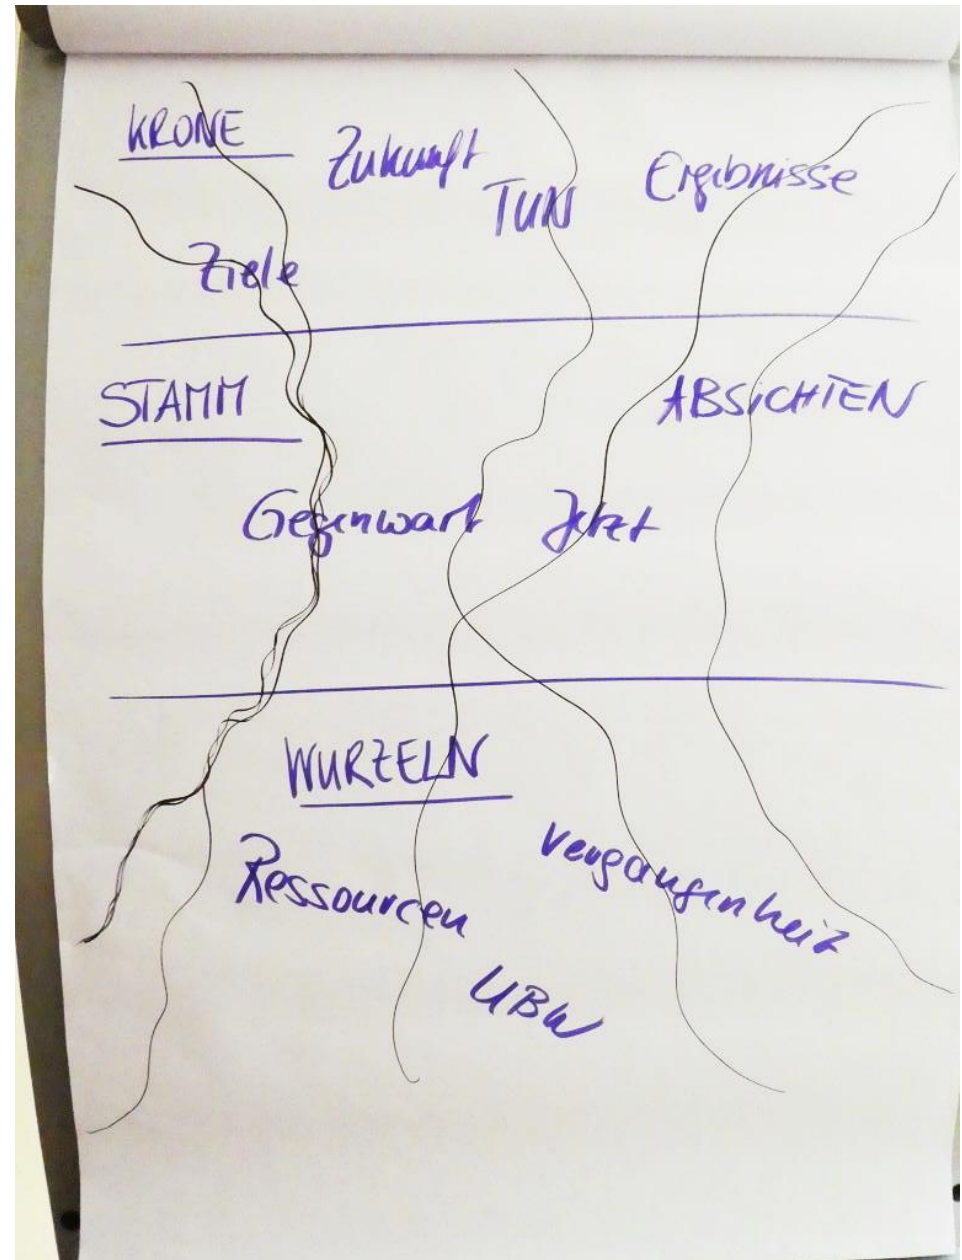 KRONE
Zukunft
TUN
Ergebnisse
Ziele
STAMM
ABSiCHTEN
Gegenwart
Jetzt
WURZELN
Ressourcen
Vergangenheit
UBW